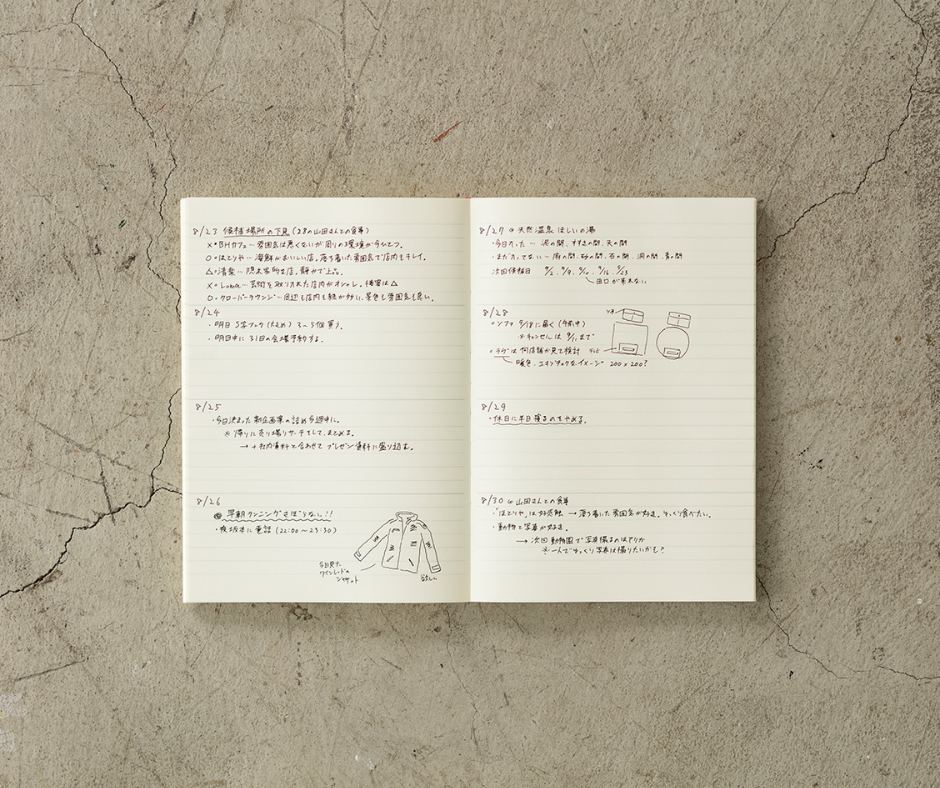 8/23 候補場所の下見(28の山田さんとの食事)
×・BHカフェ〜雰囲気は悪くないが周りの環境が今ひとつ。
○・はとりや〜海鮮がおいしい店。落ち着いた雰囲気で店内もキレイ。
△・清楽〜隠れ家的な店。静かで上品。
×・Luba〜芸術を取り入れた店内がオシャレ。接客は△
○・クローバーラウンジ〜周辺も店内も緑が多い。景色も雰囲気も良い。
8/24
・明日 S字フック(大きめ) 3〜5個買う。
・明日中に31日の会場予約する。
8/25
・今日決まった新企画案の詰め今週中に。
※帰りに売り場リサーチをして、まとめる。
→+社内資料と合わせて プレゼン資料に盛り込む。
8/26
早朝ランニングさぼりなし!!
・夜坂井に電話(22:00〜23:30)
今日見た
ワインレッドの
ジャケット
欲しい
8/27 @天然温泉 ほしいの湯
・今日入った 〜 泥の間、すすきの間、天の間
・まだ入ってない〜 雨の間、砂の間、石の間、洞の間、青の間
次回候補日
田口が来れない
8/28
・ソファ 9/18に届く(午前中)
※キャンセルは 9/1まで
・ラグは何店舗か見て検討
暖色、エキゾチックなイメージ 200×200?
ソファ
テレビ
8/29
・休日に半日寝るのをやめる。
8/30 @山田さんとの食事
・「はとりや」は好感触 → 落ち着いた雰囲気が好き。ゆっくり食べたい。
・動物と写真が好き。
→次回 動物園で写真撮るのはアリか
※一人でゆっくり写真は撮りたいかも?